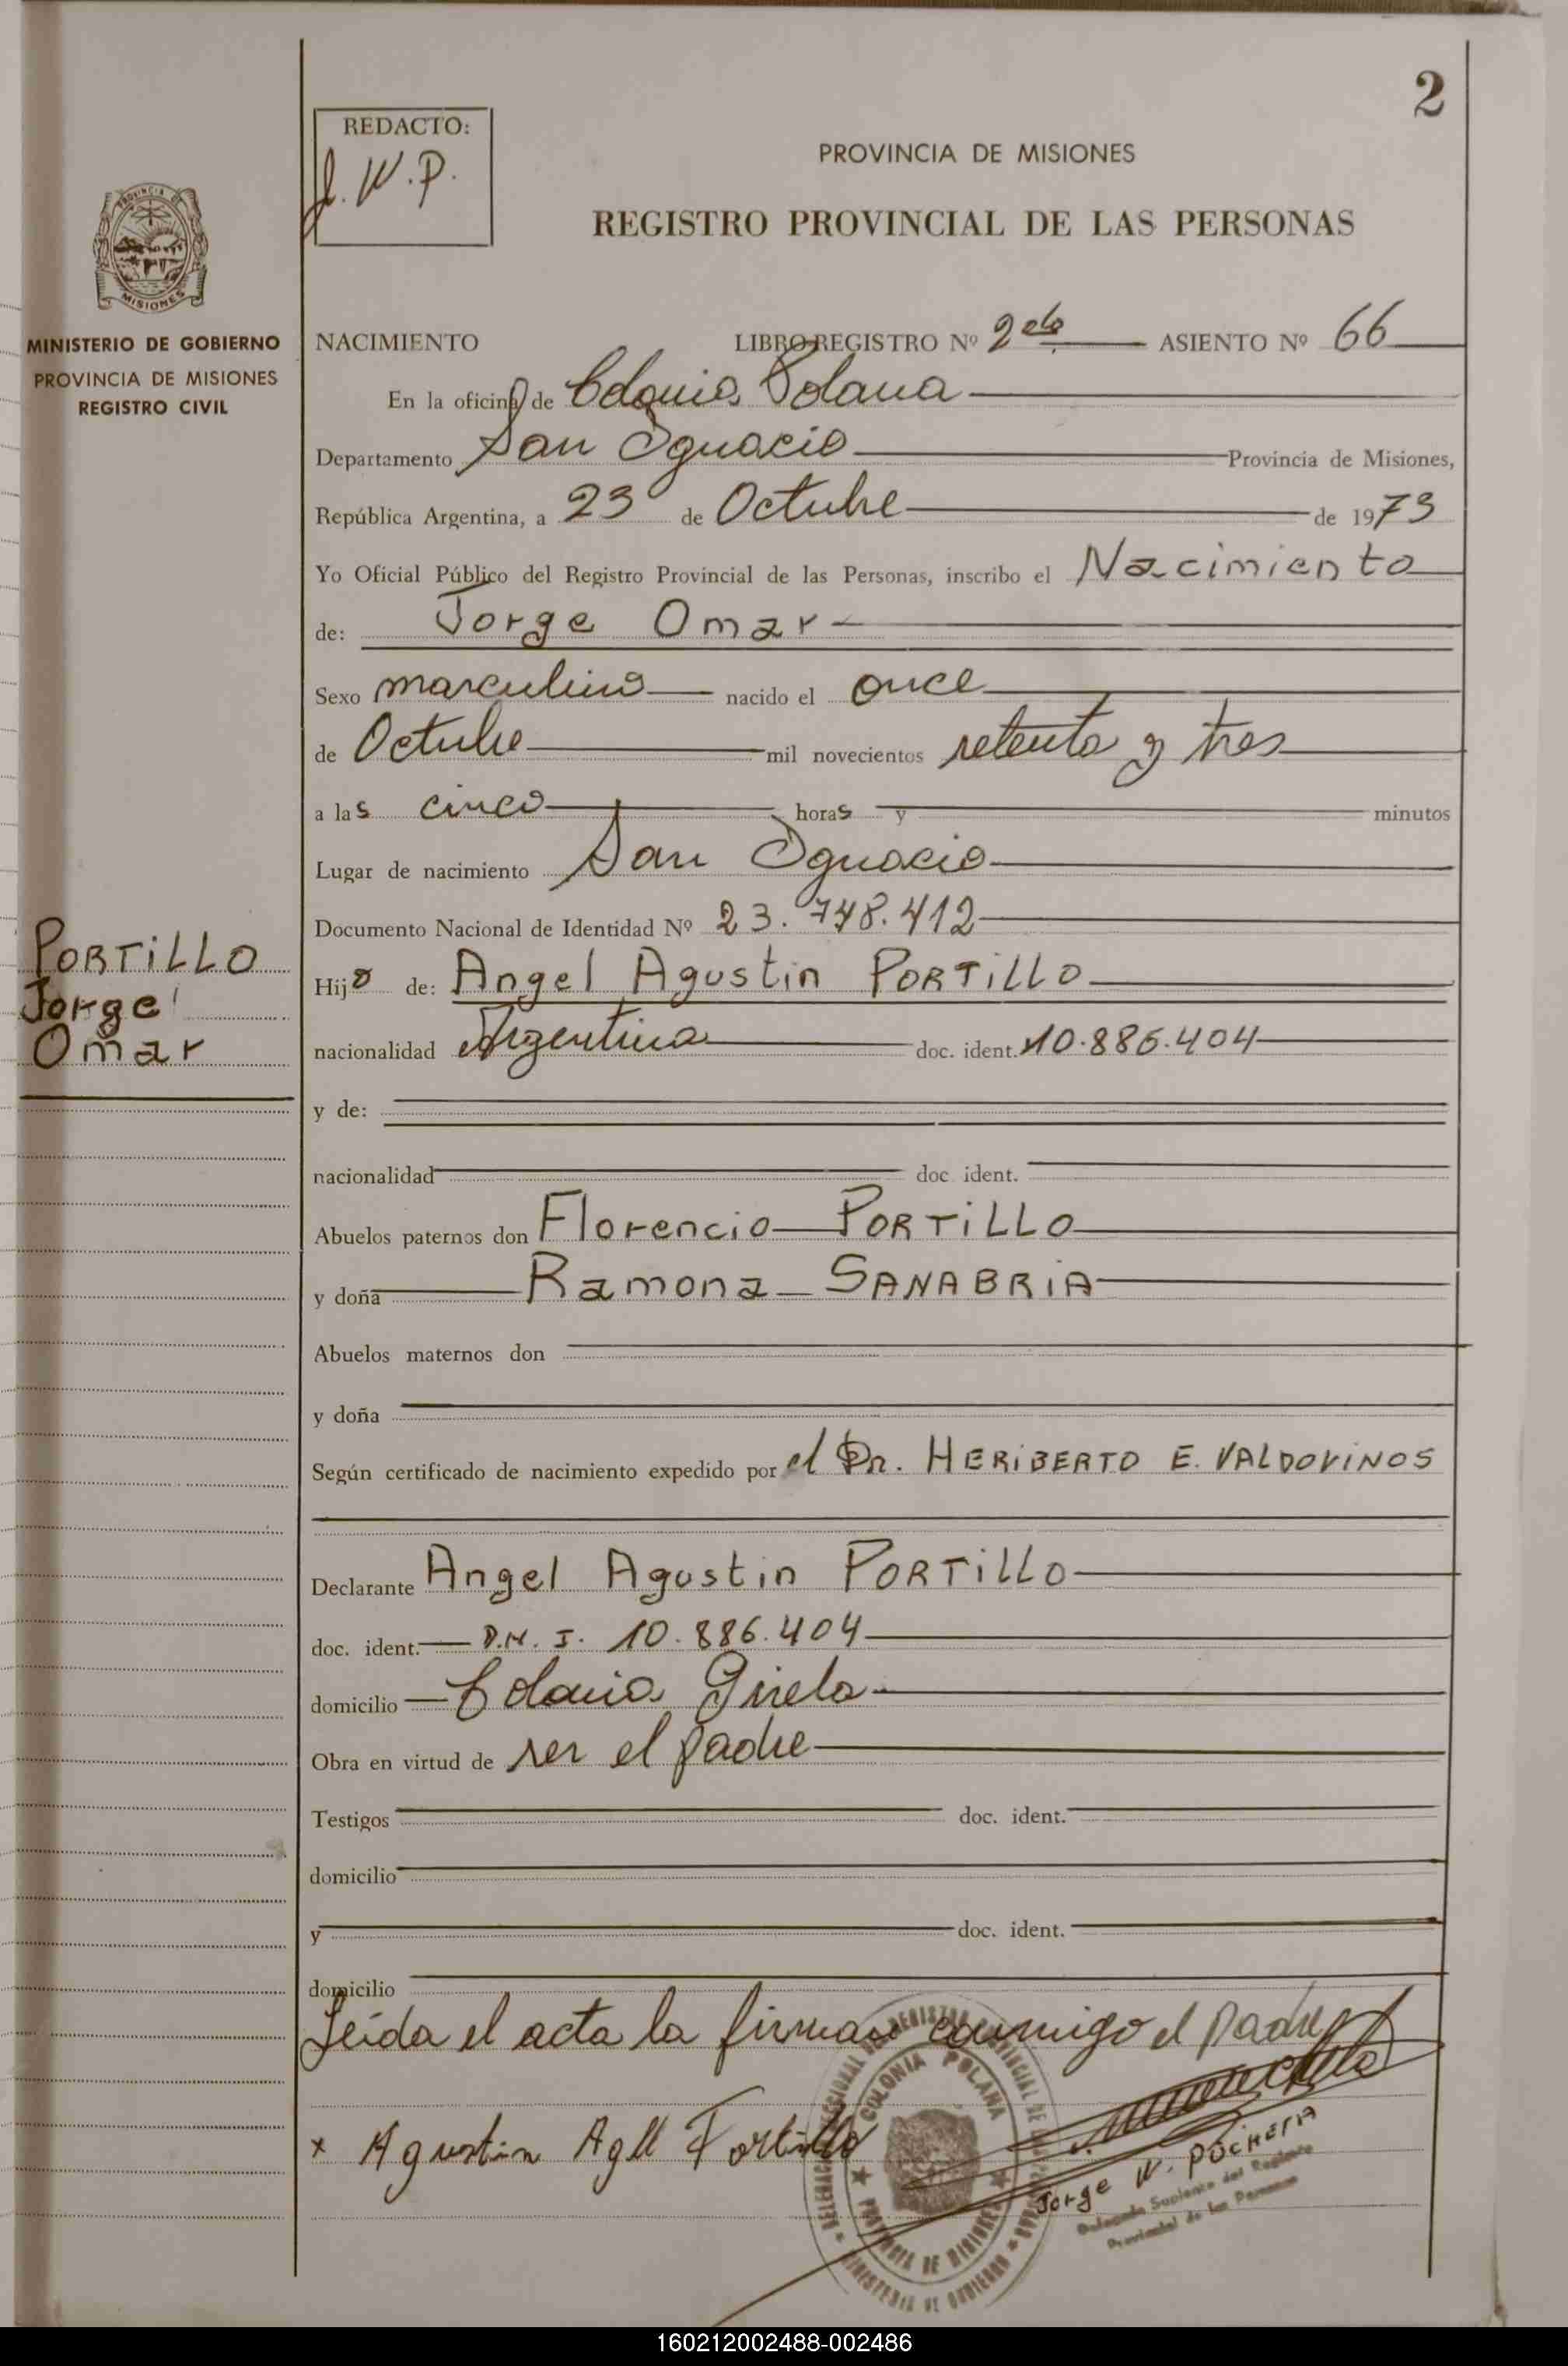 2
REDACTO:
J. W. P.
PROVINCIA DE MISIONES
REGISTRO PROVINCIAL DE LAS PERSONAS
PROVINCIA DE
MISIONES
MINISTERIO DE GOBIERNO
PROVINCIA DE MISIONES
REGISTRO CIVIL
NACIMIENTO LIBRO REGISTRO Nº 2do ASIENTO Nº 66
En la oficina de Colonia Polana
Departamento San Ignacio Provincia de Misiones,
República Argentina, a 23 de Octubre de 1973
Yo Oficial Público del Registro Provincial de las Personas, inscribo el Nacimiento
de: Jorge Omar
Sexo masculino nacido el once
de Octubre mil novecientos setenta y tres
a las cinco horas y minutos
Lugar de nacimiento San Ignacio
Documento Nacional de Identidad Nº 23.748.412
PORTiLLO
Jorge
Omar
Hijo de: Angel Agustin PORTiLLO
nacionalidad Argentina doc. ident. 10.886.404
y de:
nacionalidad doc. ident.
Abuelos paternos don Florencio PORTiLLO
y doña Ramona SANABRiA
Abuelos maternos don
y doña
Según certificado de nacimiento expedido por el Dr. HERiBERTO E. VALDOViNOS
Declarante Angel Agustin PORTiLLO
doc. ident. D.N.I. 10.886.404
domicilio Colonia Gisela
Obra en virtud de ser el padre
Testigos doc. ident.
domicilio
y doc. ident.
domicilio
Leída el acta la firman conmigo el padre
x Agustin Agll Portillo
COLONIA POLANA
PROVINCIA DE MISIONES
MINISTERIO DE GOBIERNO
Jorge W. POCHEiA
Delegado Suplente del Registro
Provincial de las Personas
160212002488-002486